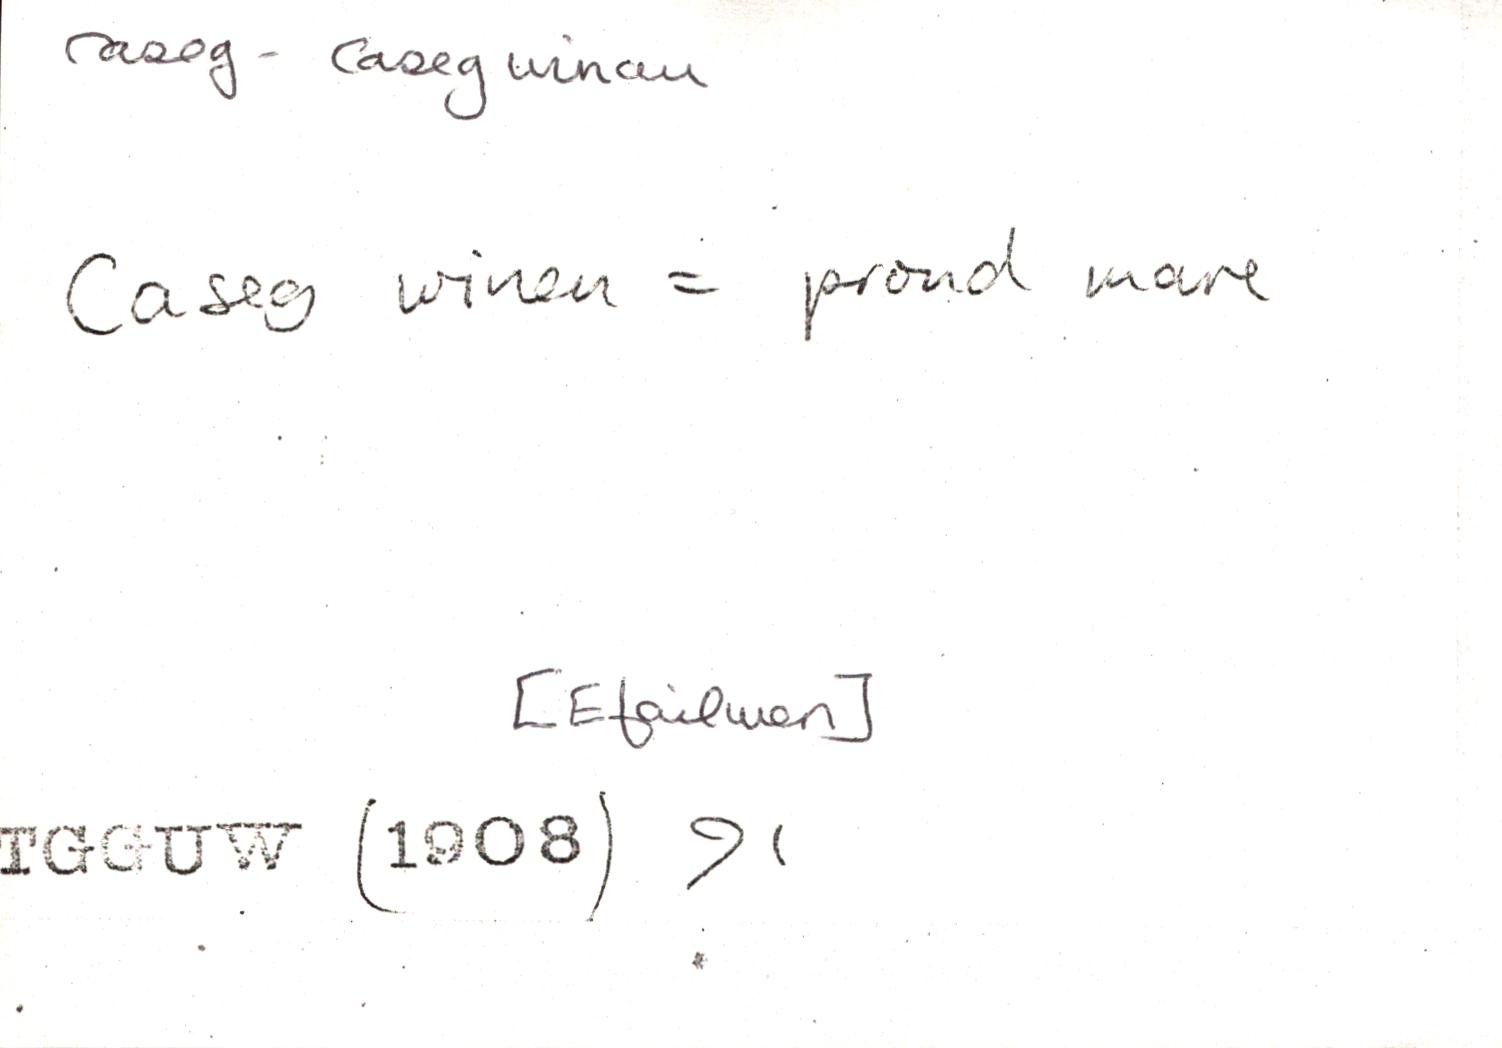 caseg - caseg winau
Caseg winen = proud mare
[Efailwen]
TGGUW (1908) 91